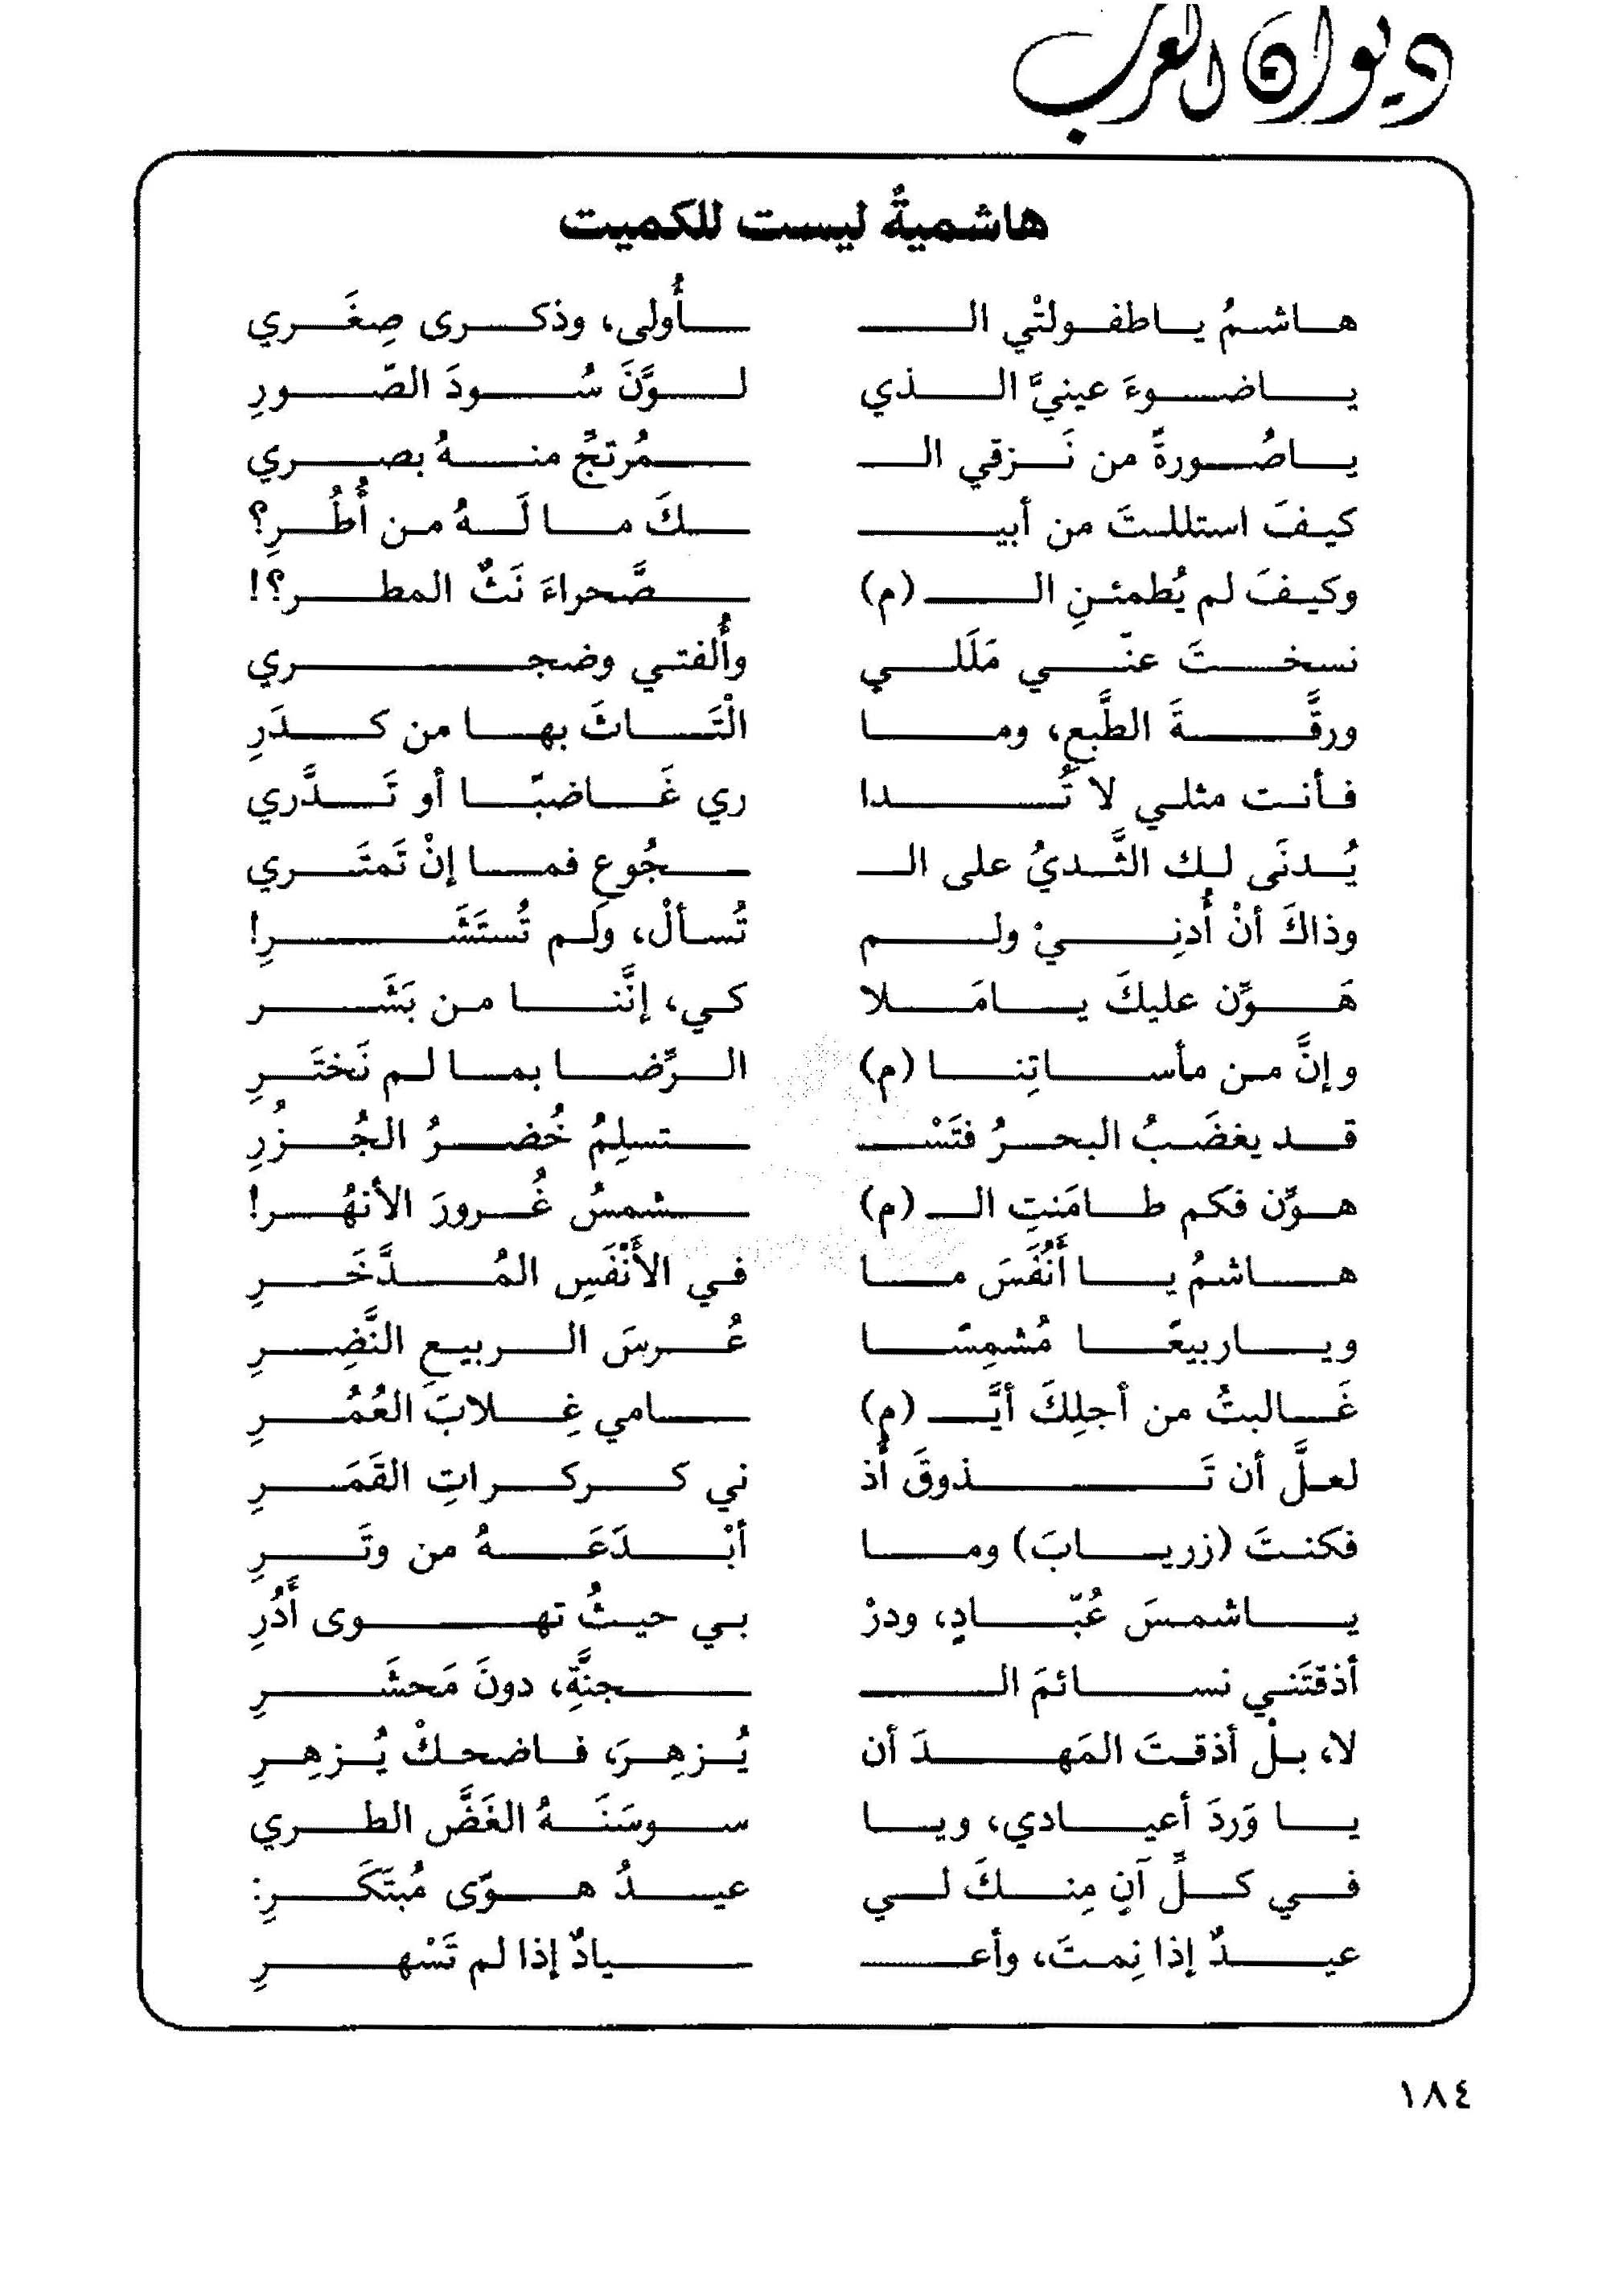 ديوان العرب
هاشميةٌ ليست للكميت
هاشمُ ياطفولتْي الـ ـأُولى، وذكرى صِغَري
ياضوءَ عينيَّ الذي لوَّنَ سُودَ الصّورِ
ياصُورةً من نَزقي الـ ـمُرتجُّ منهُ بصري
كيفَ استللتَ من أبيـ ـكَ ما لَهُ من أُطُرِ؟
وكيفَ لم يُطمئنِ الـ (م) ـصَّحراءَ نَثُّ المطر؟!
نسختَ عنّي مَلَلي وأُلفتي وضجري
ورقَّةَ الطَّبعِ، وما الْتَاثَ بها من كدَرِ
فأنت مثلي لا تُدا ري غَاضبًا أو تَدَّري
يُدنَى لك الثَّديُ على الـ ـجُوعِ فما إنْ تَمتَري
وذاكَ أنْ أُدنِيْ ولم تُسألْ، ولَم تُستَشَرِ!
هَوِّن عليكَ يامَلا كي، إنَّنا من بَشَر
وإنَّ من مأساتِنا (م) الرِّضا بما لم نَختَرِ
قد يغضَبُ البحرُ فتَسْـ ـتسلِمُ خُضرُ الجُزُرِ
هوِّن فكَم طامَنتِ الـ (م) ـشمسُ غُرورَ الأنهُر!
هاشمُ يا أَنْفَسَ ما في الأَنْفَسِ المُدَّخَرِ
وياربيعًا مُشمِسًا عُرسَ الربيعِ النَّضِرِ
غَالبتُ من أجلِكَ أيَّـ (م) ـامي غِلابَ العُمُرِ
لعلَّ أن تَذوقَ أُذ ني كركراتِ القَمَرِ
فكنتَ (زريابَ) وما أبْدَعَهُ من وتَرِ
ياشمسَ عُبّادٍ، ودرْ بي حيثُ تهوى أَدُرِ
أذقتَني نسائمَ الـ ـجنَّةِ، دونَ مَحشَرِ
لا، بلْ أذقتَ المَهدَ أن يُزهِرَ، فاضحكْ يُزهِرِ
يا وَردَ أعيادي، ويا سوسَنَهُ الغَضَّ الطري
في كلِّ آنٍ مِنكَ لي عيدُ هوًى مُبتَكَرِ:
عيدٌ إذا نِمتَ، وأعـ ـيادٌ إذا لم تَسْهرِ
١٨٤